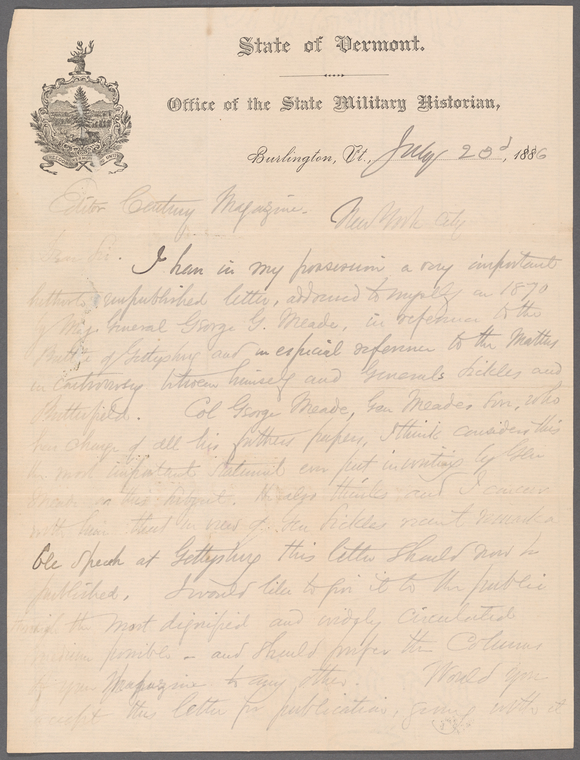 State of Vermont.
Office of the State Military Historian,
Burlington, Vt., July 23d, 1886
Editor Century Magazine.
New York City
Dear Sir. I have in my possession a very important
hitherto unpublished letter, addressed to myself in 1870
by Maj. General George G. Meade, in reference to the
Battle of Gettysburg and in especial reference to the Matters
in controversy between himself and Generals Sickles and
Butterfield. Col George Meade, Gen Meades Son, who
has charge of all his fathers papers, I think considers this
the most important statement ever put in writing by Gen
Meade on this subject. He also thinks and I concur
with him that in view of Gen Sickles recent remarka
ble speech at Gettysburg this letter should now be
published. I would like to give it to the public
through the most dignified and widely circulated
medium possible - and should prefer the Columns
of your Magazine to any other. Would you
accept this letter for publication, giving with it